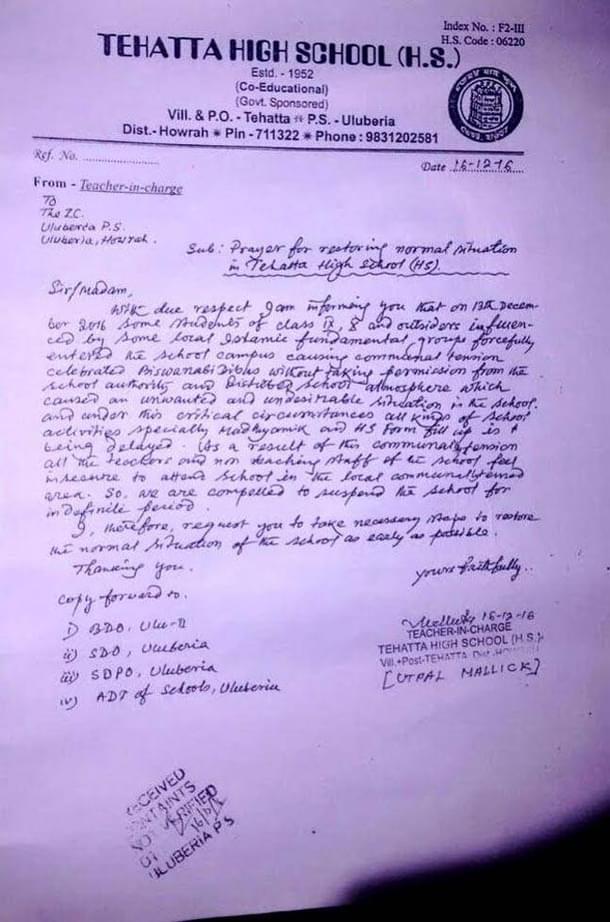 Index No. : F2-III
H.S. Code : 06220
TEHATTA HIGH SCHOOL (H.S.)
Estd. - 1952
(Co-Educational)
(Govt. Sponsored)
Vill. & P.O. - Tehatta ✳ P.S. - Uluberia
Dist.- Howrah ✳ Pin - 711322 ✳ Phone : 9831202581
Ref. No. ........................
Date 16-12-16
From - Teacher-in-charge
To
The I.C.
Uluberia P.S.
Uluberia, Howrah.
Sub : Prayer for restoring normal situation
in Tehatta High School (HS).
Sir/Madam,
With due respect I am informing you that on 13th Decem-
ber 2016 some students of class IX, X and outsiders influen-
ced by some local Islamic fundamental groups forcefully
entered the school campus causing communal tension
celebrated Biswanabi Dibas without taking permission from the
school authority and Disturbed School atmosphere which
caused an unwanted and undesirable situation in the school.
and under this critical circumstances all kinds of school
activities specially Madhyamik and HS Form fill up is
being delayed. As a result of this communal tension
all the teachers and non teaching staff of the school feel
insecure to attend school in the local communally tensed
area. So, we are compelled to suspend the school for
indefinite period.
I, therefore, request you to take necessary steps to restore
the normal situation of the school as early as possible.
Thanking you.
yours faithfully..
Copy forward to.
i) BDO, Ulu-II
ii) SDO, Uluberia
iii) SDPO, Uluberia
iv) ADI of Schools, Uluberia
16-12-16
TEACHER-IN-CHARGE
TEHATTA HIGH SCHOOL (H.S.)
Vill.+Post-TEHATTA, Dist.-HOWRAH
[UTPAL MALLICK]
RECEIVED
CONTAINTS
NOT VERIFIED
ULUBERIA P S